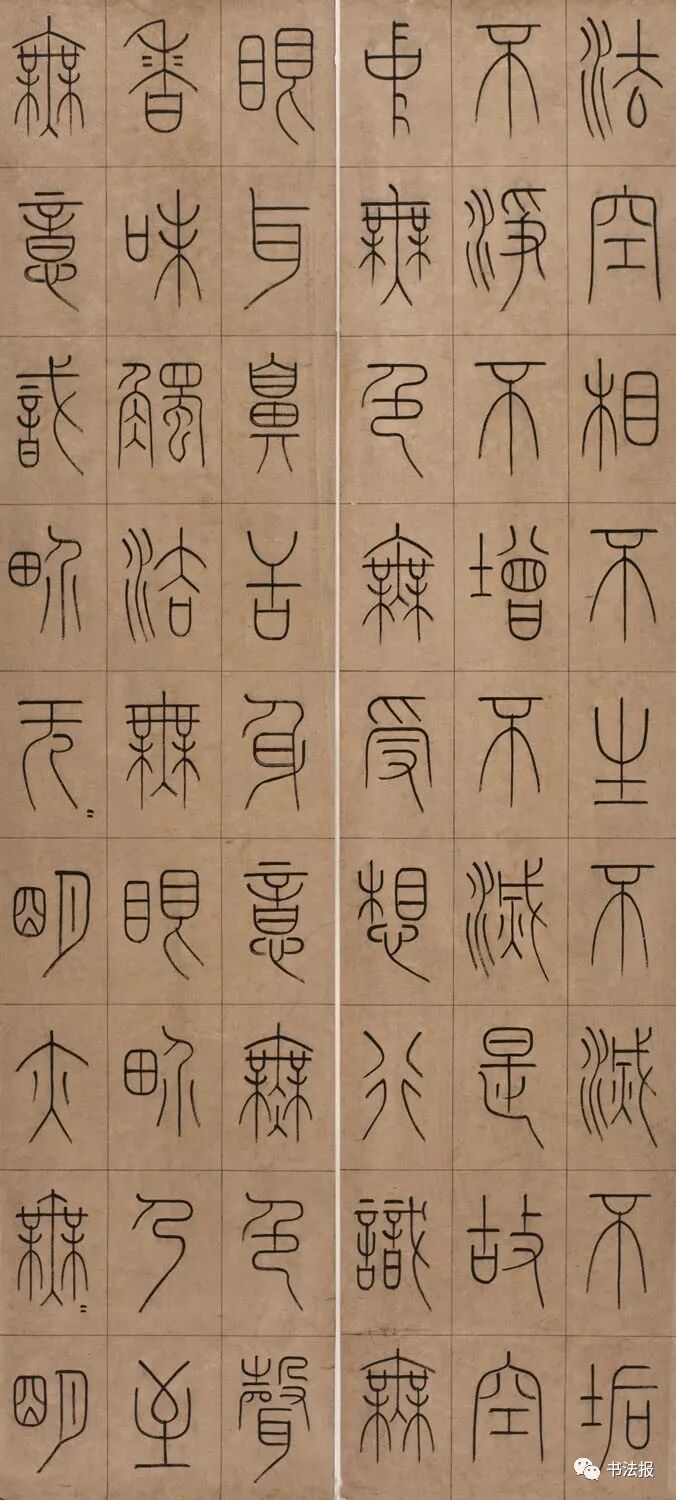 法空相不生不滅不垢
不淨不增不滅是故空
中無色無受想行識無
眼耳鼻舌身意無色聲
香味觸法無眼界乃至
無意識界无〻明亦無〻明
书法报